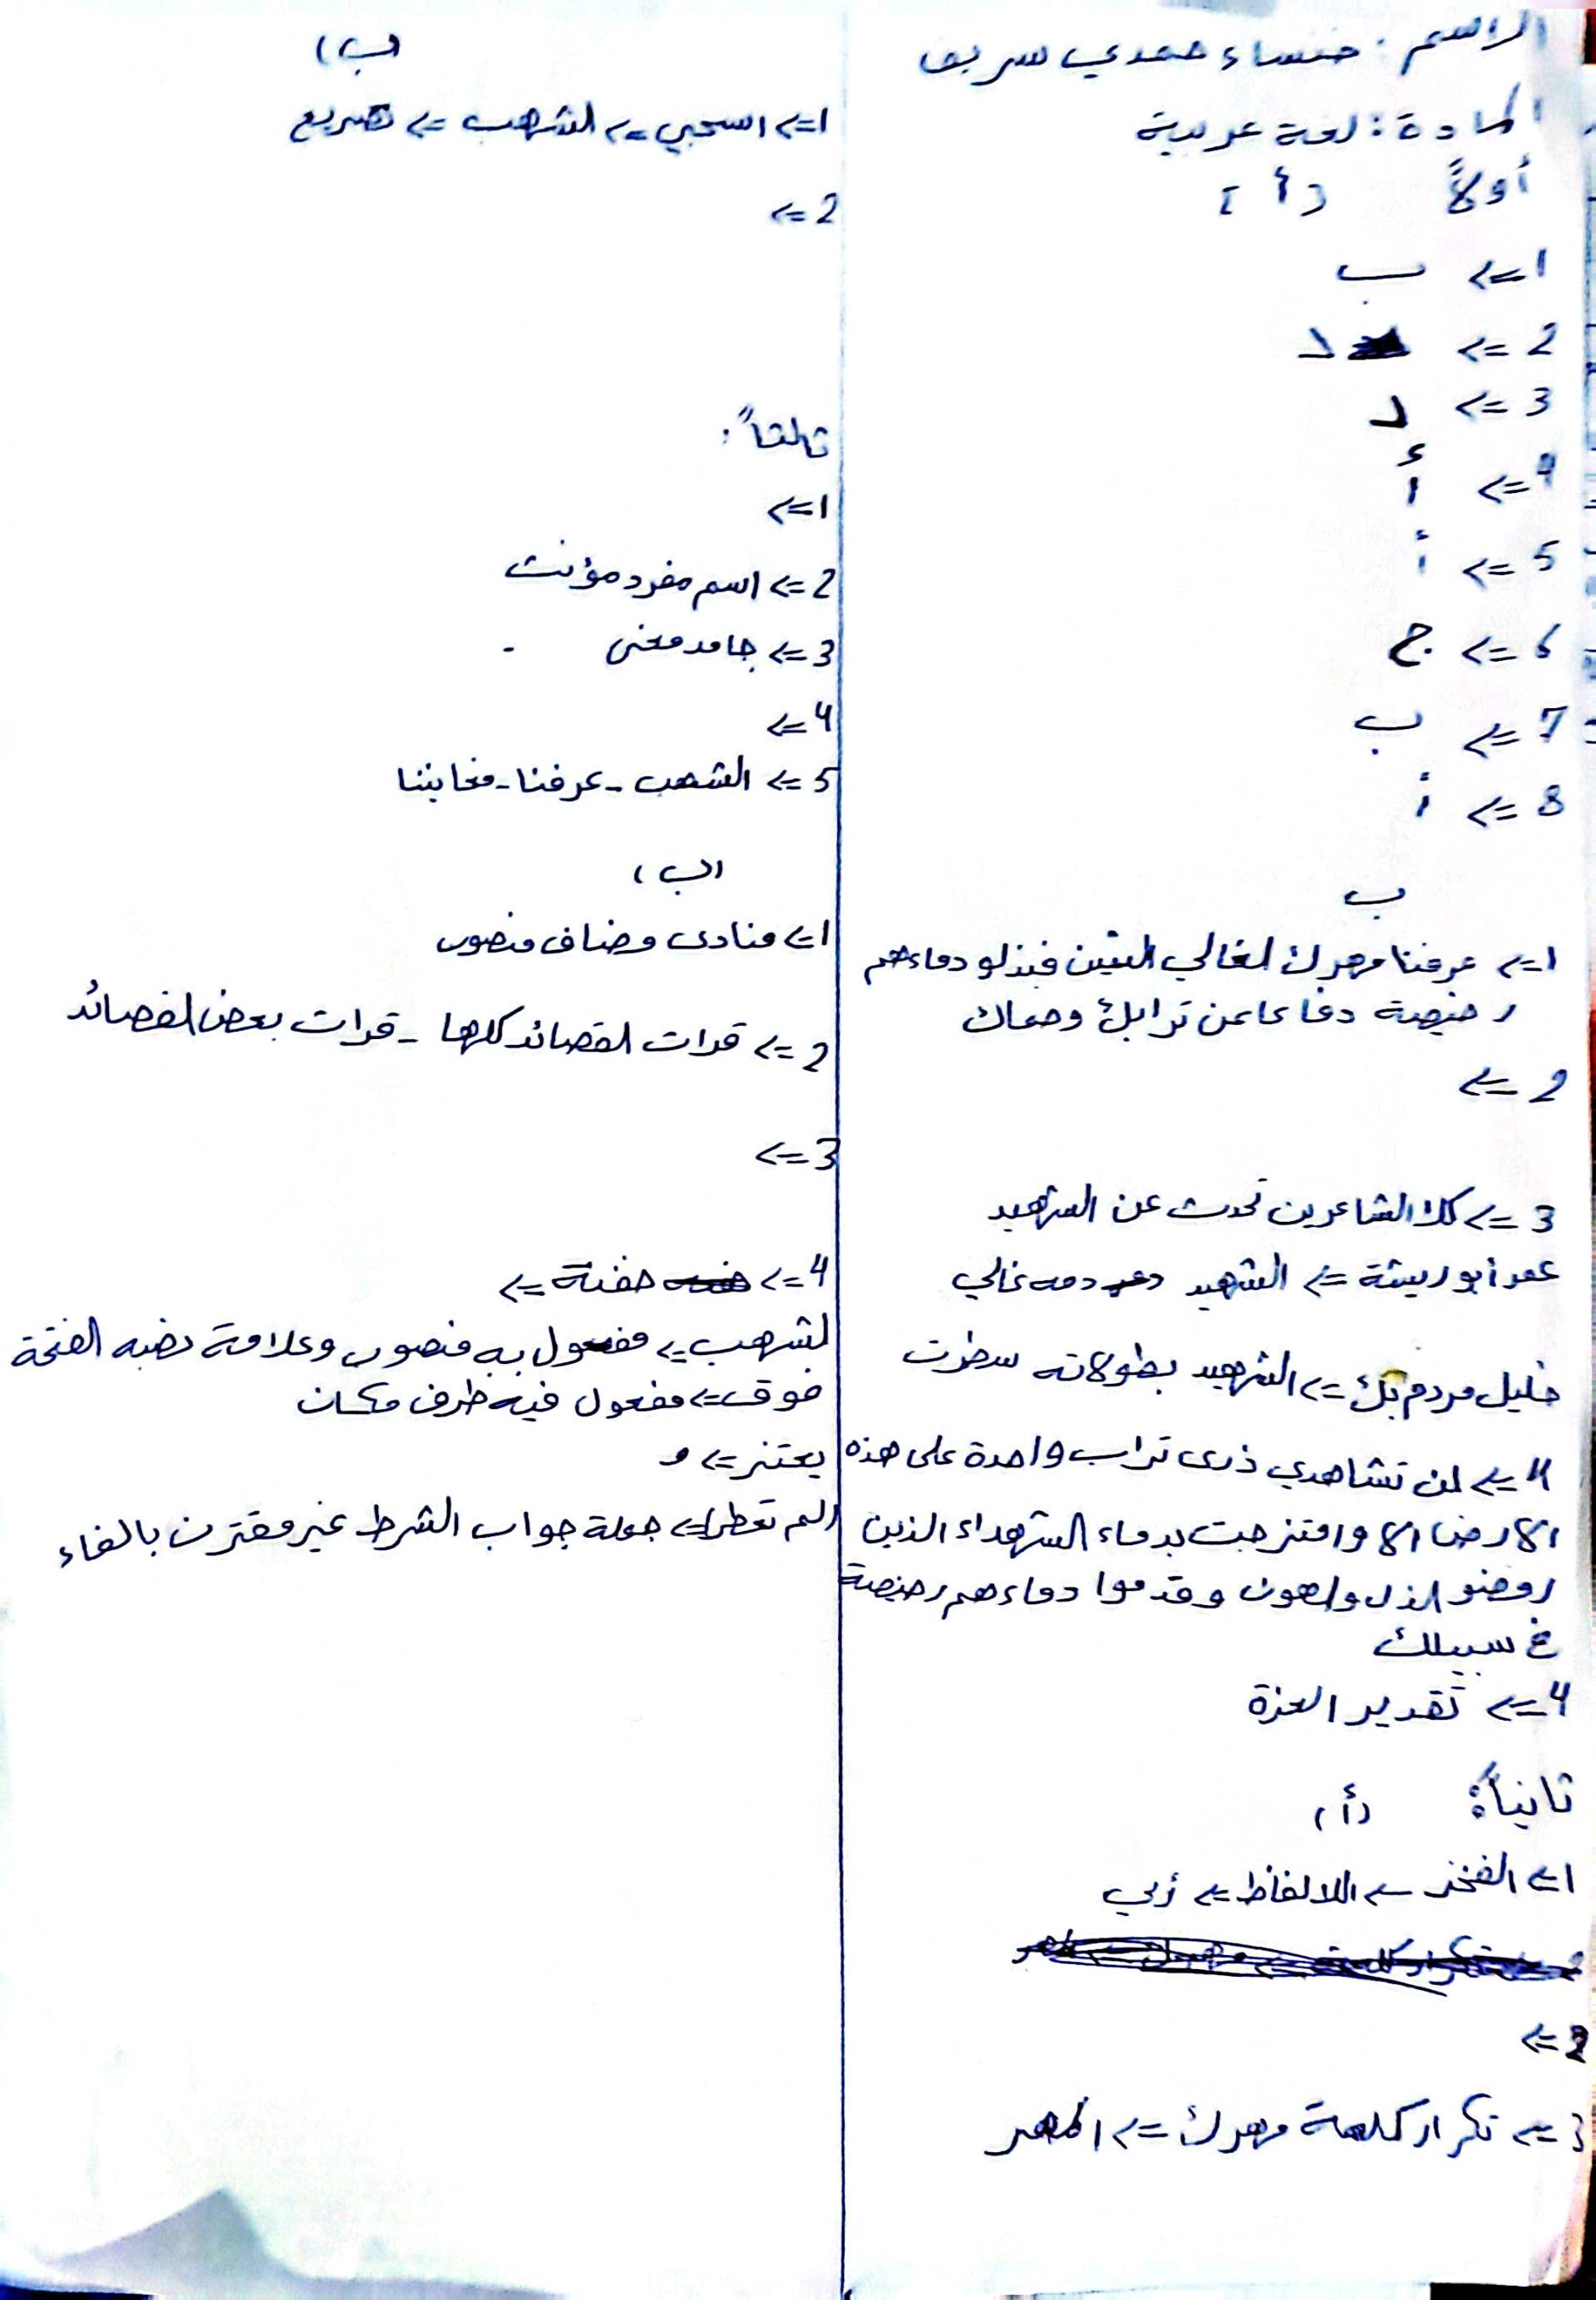 الاسم : خنساء حمدي سريو
المادة : لغة عربية
أولاً [أ]
1 => ب
2 => د
3 => د
4 => أ
5 => أ
6 => ج
7 => ب
8 => أ
ب
1 => عرفنا مهرك الغالي الثمين فبذلو دماءهم
رخيصة دفاعا عن ترابك وحماك
2 =>
3 => كلا الشاعرين تحدث عن الشهيد
عمر أبو ريشة => الشهيد دمه غالي
خليل مردم بك => الشهيد بطولاته سطرت
4 => لن تشاهدي ذرى تراب واحدة على هذه
الارض الا وامتزجت بدماء الشهداء الذين
رفضو الذل والهون وقدموا دماءهم رخيصة
في سبيلك
4 => تقدير العزة
ثانياً: (أ)
1 => الفخر => اللالفاظ => أبي
2 =>
3 => تكرار كلمة مهرك => المهر
(ب)
1 => اسحبي => الشهب => تصريع
2 =>
ثالثاً:
1 =>
2 => اسم مفرد مؤنث
3 => جامد معنى
4 =>
5 => الشهب - عرفنا - مغانينا
(ب)
1 => منادى مضاف منصوب
2 => قرات القصائد كلها - قرات بعض القصائد
3 =>
4 => حفنة =>
الشهب => مفعول به منصوب وعلامة نصبه الفتحة
فوق => مفعول فيه ظرف مكان
يعتنر => م
لم تعطر => جملة جواب الشرط غير مقترن بالفاء